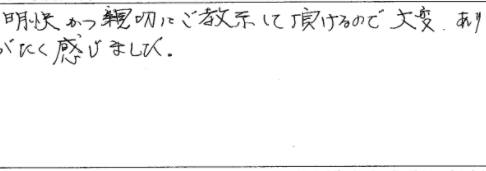 明快かつ親切にご教示して頂けるので大変、あり
がたく感じました。